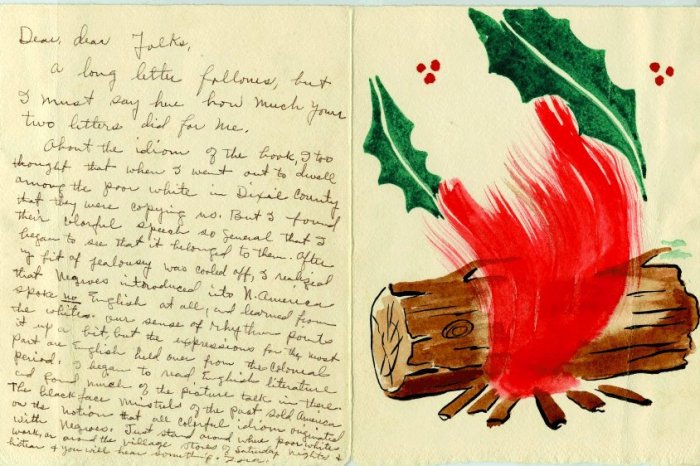 Dear, dear Folks,
A long letter follows, but
I must say here how much your
two letters did for me.
About the idiom of the book, I too
thought that when I went out to dwell
among the poor white in Dixie County
that they were copying us. But I found
their colorful speech so general that I
began to see that it belonged to them. After
my fit of jealousy was cooled off, I realized
that Negroes introduced into N. America
spoke no English at all, and learned from
the whites. Our sense of rhythm points
it up a bit, but the expressions for the most
part are English held over from the Colonial
period. I began to read English literature
and found much of the picture talk in there.
The black face minstrels of the past sold America
on the notion that all colorful idiom originated
with Negroes. Just stand around where poor whites
work, or around the village stores of Saturday nights &
listen & you will hear something. Zora.